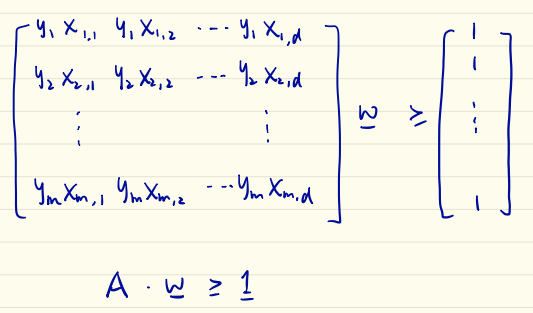 y₁x₁,₁ y₁x₁,₂ ... y₁x₁,d 1
y₂x₂,₁ y₂x₂,₂ ... y₂x₂,d 1
⋮ ⋮ w ≥ ⋮
yₘxₘ,₁ yₘxₘ,₂ ... yₘxₘ,d 1
A · w ≥ 1